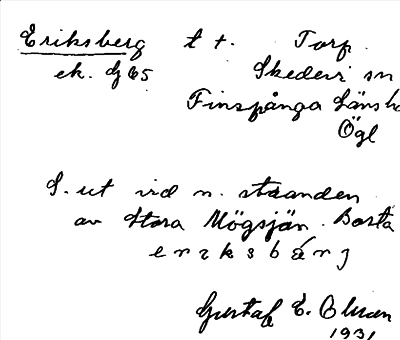 Eriksberg t t. Torp.
ek. Dj 65 Skedevi sn
Finspånga länsh
Ögl
S. ut vid n. stranden
av Stora Mögsjön. Borta
e n r k s b á n j
Gustaf E. Olman
1931